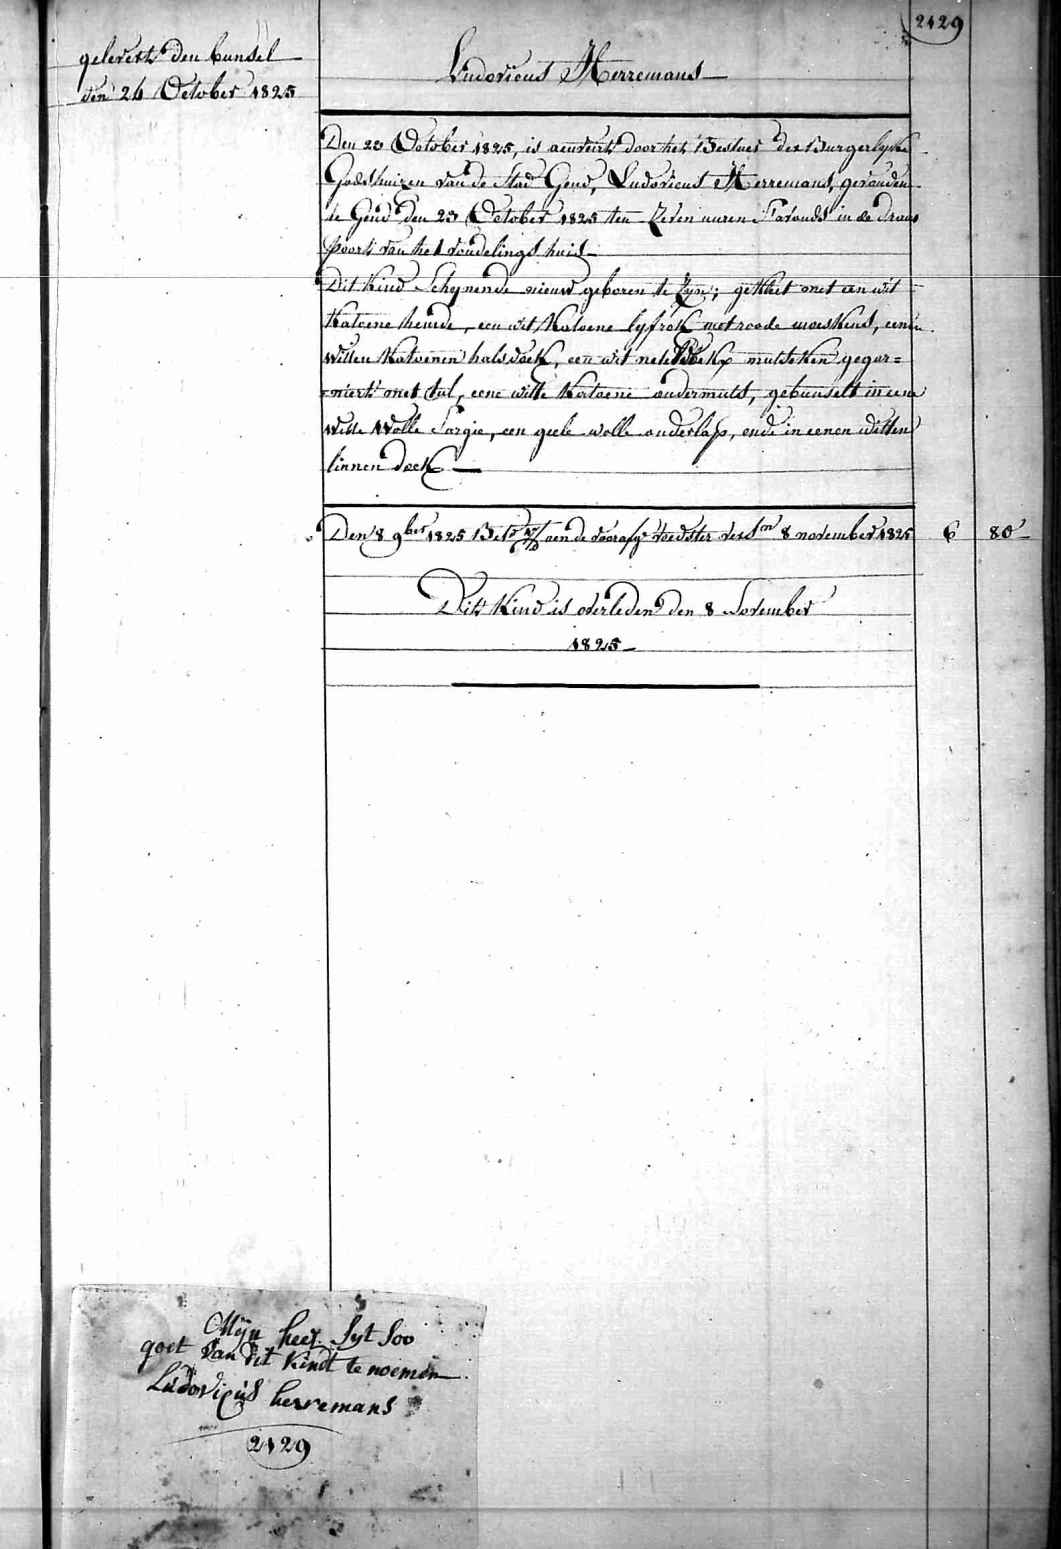 2129
gelevert den bunsel
den 26 October 1825
Ludovicus Herremans
Den 23 October 1825, is aenveirt door het Bestuer der Burgerlyke
Godshuizen van de Stad Gend, Ludovicus Herremans, gevonden
te Gend den 23 October 1825 ten Zeven uuren s'avonds in de draai
poort van het vondelings huis
Dit Kind Schynende nieuw geboren te Zyn; gekleet met een wit
Katoene hemde, een wit Katoene lyfrok met roode moeskens, eenen
witten Katoenen halsdoek, een wit neteldoeks mutseken gegar=
=niert met tul, eene witte Katoene ondermuts, gebunselt in eene
witte wolle Sargie, een geele wolle onderlap, ende in eenen witten
linnen doek
Den 8 9ber 1825 Bet aen de voorafge voedster vers 8 november 1825 6 80
Dit Kind is overleden den 8 November
1825
Mijn heer Syt Soo
goet van dit Kindt te noemen
Ludovicus herremans
2129